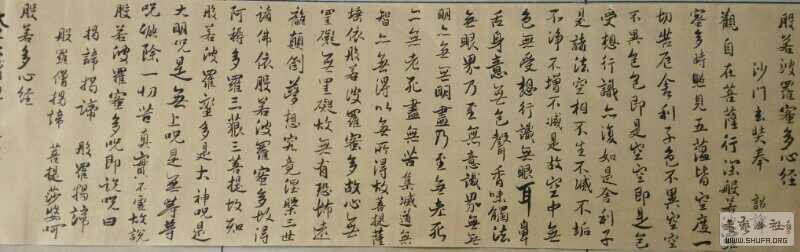 般若波羅蜜多心經
沙門玄奘奉 詔
觀自在菩薩行深般若
蜜多時照見五蕴皆空度一
切苦厄舍利子色不異空空
不異色色即是空空即是色
受想行識亦復如是舍利子
是諸法空相不生不滅不垢
不净不增不减是故空中無
色無受想行識無眼耳鼻
舌身意無色聲香味觸法
無眼界乃至無意識界無無
明亦無無明盡乃至無老死
亦無老死盡無苦集滅道無
智亦無得以無所得故菩提薩
埵依般若波羅蜜多故心無
罣礙無罣礙故無有恐怖遠
離顛倒夢想究竟涅槃三世
諸佛依般若波羅蜜多故得
阿耨多羅三藐三菩提故知
般若波羅蜜多是大神咒是
大明咒是無上咒是無等等
咒能除一切苦真實不虚故說
般若波羅蜜多咒即說咒曰
揭諦揭諦 般羅揭諦
般羅僧揭諦 菩提莎婆呵
般若多心經
WWW.SHUFA.ORG